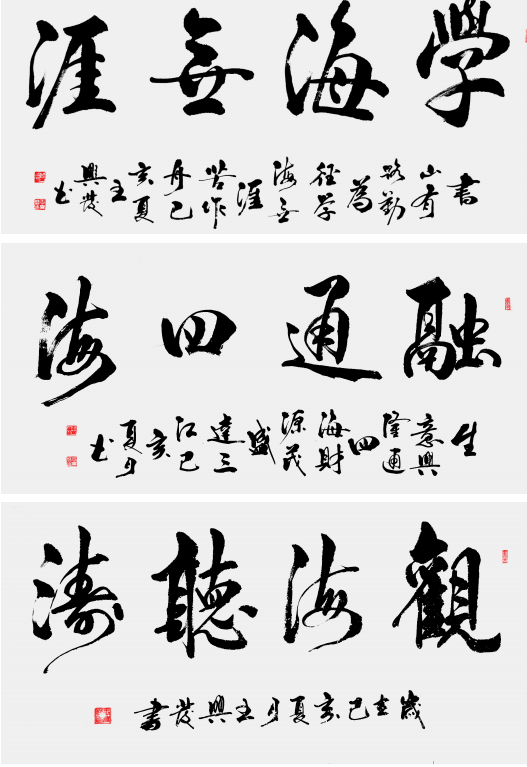 學海無涯
書山有路勤為径学海无涯苦作舟己亥夏王興發书
融通四海
生意興隆通四海財源茂盛達三江己亥夏月书
觀海聽濤
歲在己亥夏月王興發書